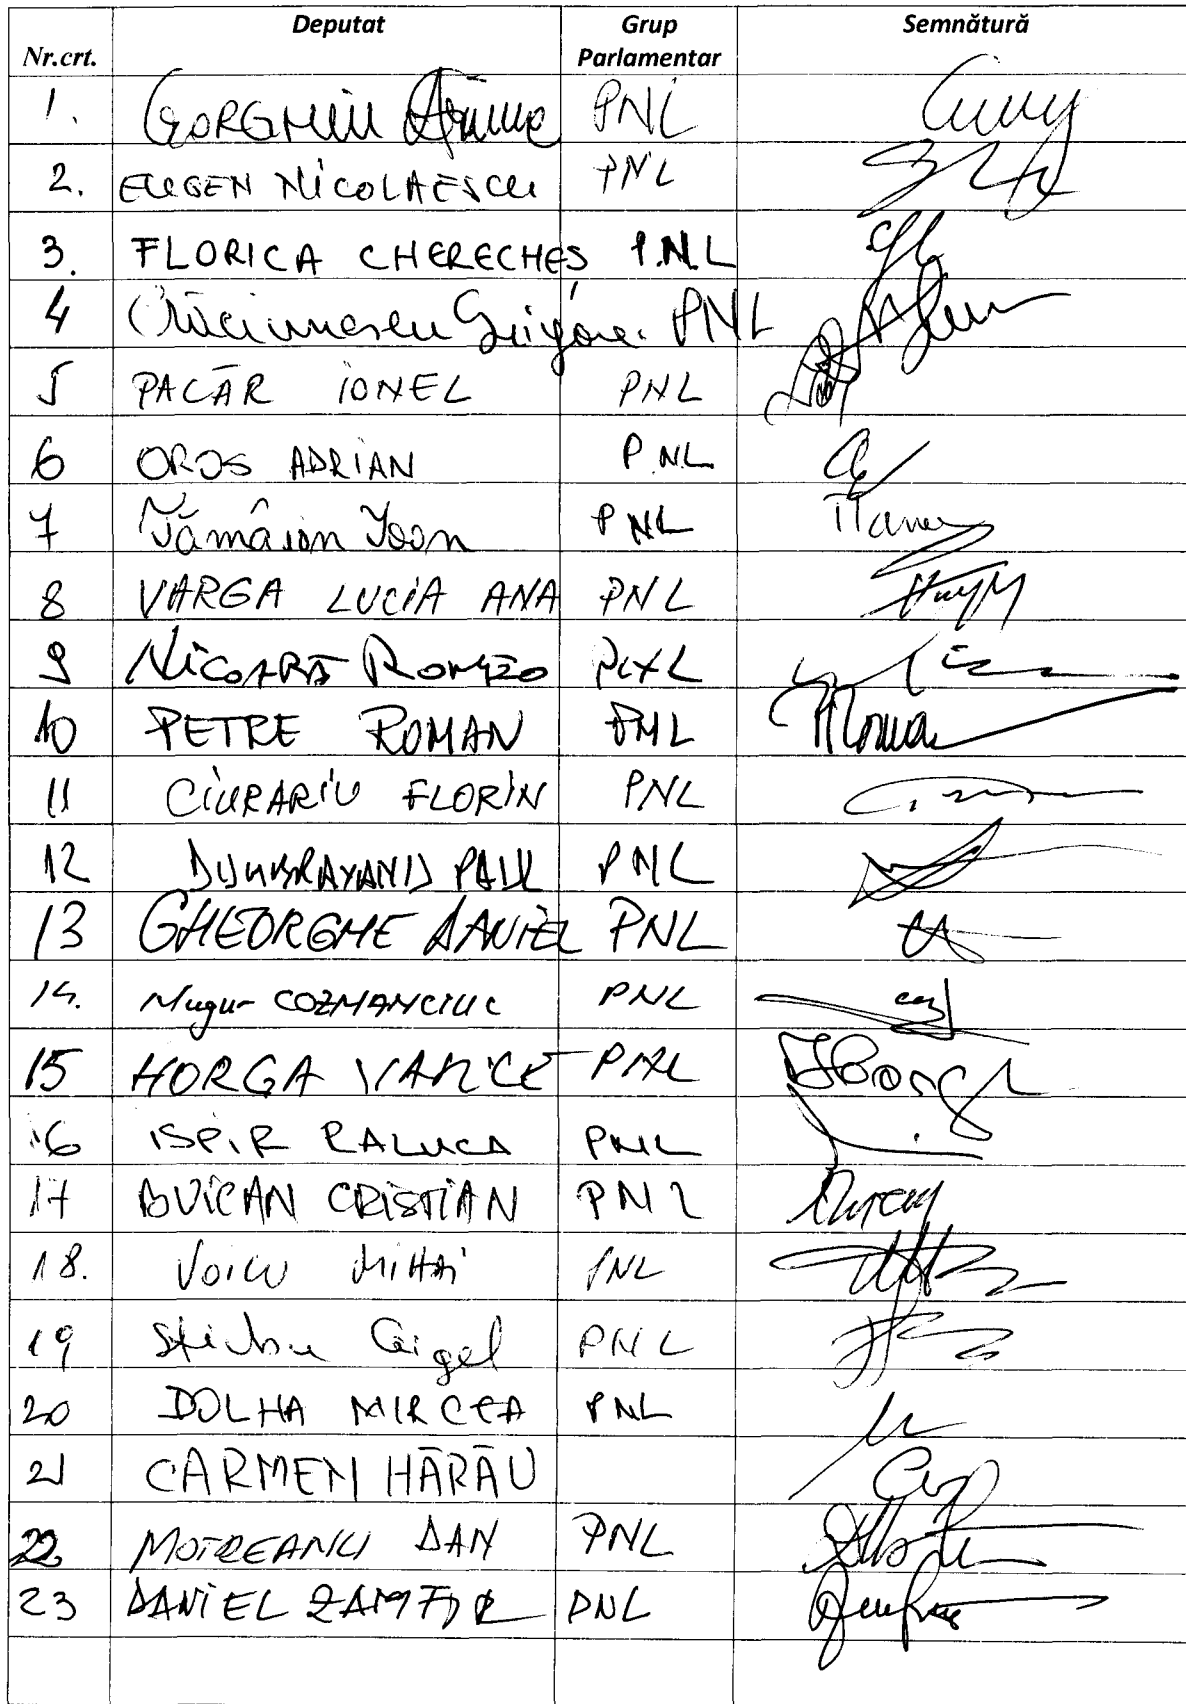 Nr.crt. Deputat Grup Parlamentar Semnătură
1. GORGHIU PNL
2. EUGEN NICOLAESCU PNL
3. FLORICA CHERECHES P.N.L
4 Crăciunescu Grigore PNL
5 PĂCAR IONEL PNL
6 OROS ADRIAN P.NL
7 Tămâian Ioan PNL
8 VARGA LUCIA ANA PNL
9 NICOARĂ ROMEO PNL
10 PETRE ROMAN PNL
11 CIURARIU FLORIN PNL
12 PAUL PNL
13 GHEORGHE DANIEL PNL
14. Mugur COZMANCIUC PNL
15 HORGA VASILE PNL
16 ISPIR RALUCA PNL
17 BUICAN CRISTIAN PNL
18. VOICU MIHAI PNL
19 Știrbu Gigel PNL
20 DOLHA MIRCEA PNL
21 CARMEN HĂRĂU
22 MOTREANU DAN PNL
23 DANIEL ZAMFIR PNL